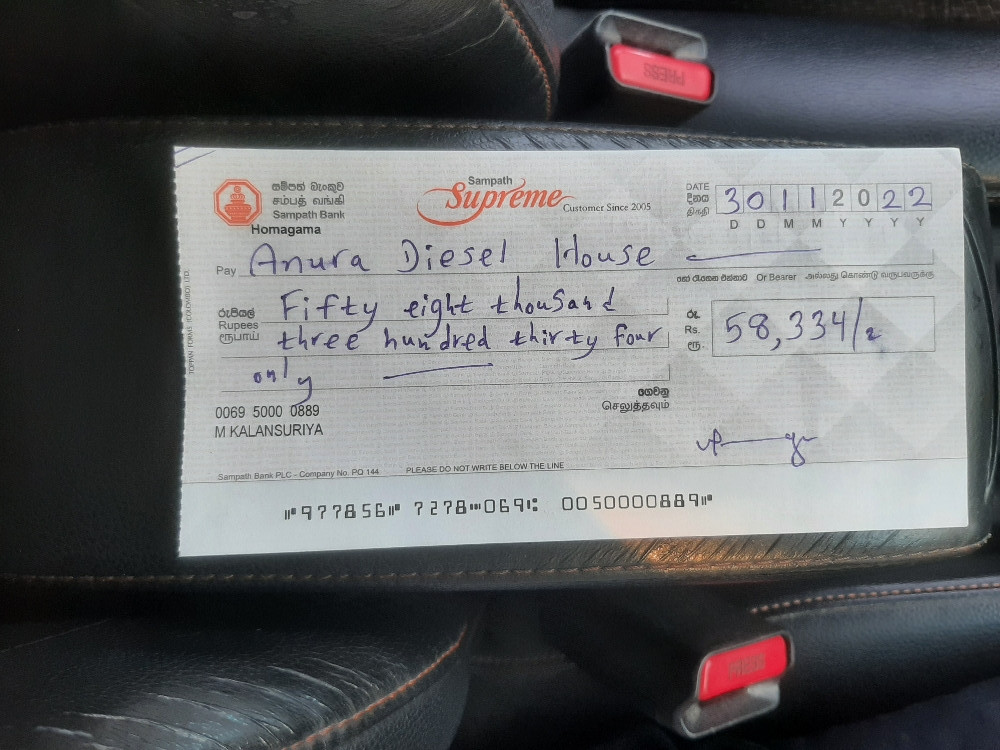 PRESS
සම්පත් බැංකුව
சம்பத் வங்கி
Sampath Bank
Homagama
Sampath
Supreme
Customer Since 2005
DATE
දිනය
திகதி
3 0 1 1 2 0 2 2
D D M M Y Y Y Y
Pay Anura Diesel House
හෝ රැගෙන එන්නාට Or Bearer அல்லது கொண்டு வருபவருக்கு
රුපියල්
Rupees
ரூபாய்
Fifty eight thousand
three hundred thirty four
only
රු.
Rs.
ரூ.
58,334/=
ගෙවනු
செலுத்தவும்
0069 5000 0889
M KALANSURIYA
TOPPAN FORMS (COLOMBO) LTD.
Sampath Bank PLC - Company No. PQ 144
PLEASE DO NOT WRITE BELOW THE LINE
⑈977856⑈ 7278⑉069⑆ 0050000889⑈
PRESS